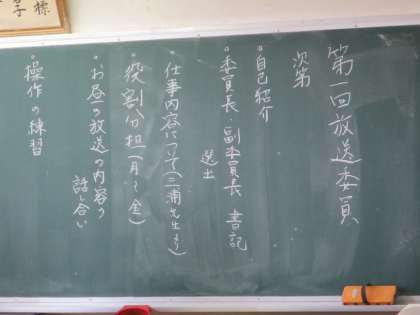 第一回放送委員
次第
・自己紹介
・委員長・副委員長 書記
選出
・仕事内容について(三浦先生より)
・役割分担(月〜金)
・お昼の放送の内容の
話し合い
・操作の練習
標